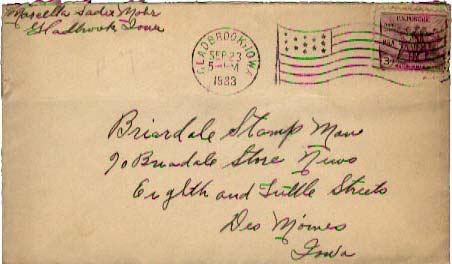 Marcella Sadie Mohr
Gladbrook Iowa
GLADBROOK, IOWA
SEP 22
5-PM
1933
3¢
Briardale Stamp Man
℅ Briardale Store News
Eighth and Tuttle Streets
Des Moines
Iowa